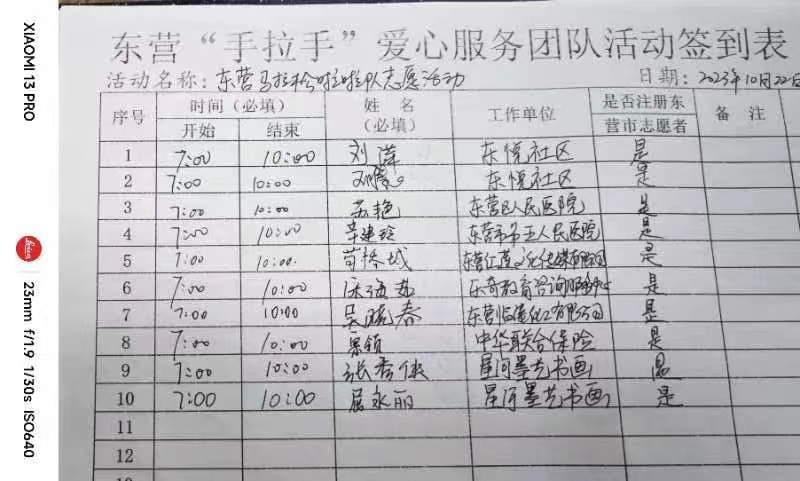 XIAOMI 13 PRO
23mm f/1.9 1/30s ISO640
东营“手拉手”爱心服务团队活动签到表
活动名称：东营马拉松啦啦队志愿活动 日期：2023年10月22日
序号 时间（必填） 姓 名（必填） 工作单位 是否注册东营市志愿者 备 注
开始 结束
1 7:00 10:00 刘萍 东悦社区 是
2 7:00 10:00 东悦社区 是
3 7:00 10:00 苏艳 东营区人民医院 是
4 7:00 10:00 辛建玲 东营市市五人民医院 是
5 7:00 10:00 苗桥城 是
6 7:00 10:00 东奇教育咨询服务中心 是
7 7:00 10:00 吴晓春 是
8 7:00 10:00 景领 中华联合保险 是
9 7:00 10:00 张秀侠 星河墨艺书画
10 7:00 10:00 屈永丽 星河墨艺书画 是
11
12